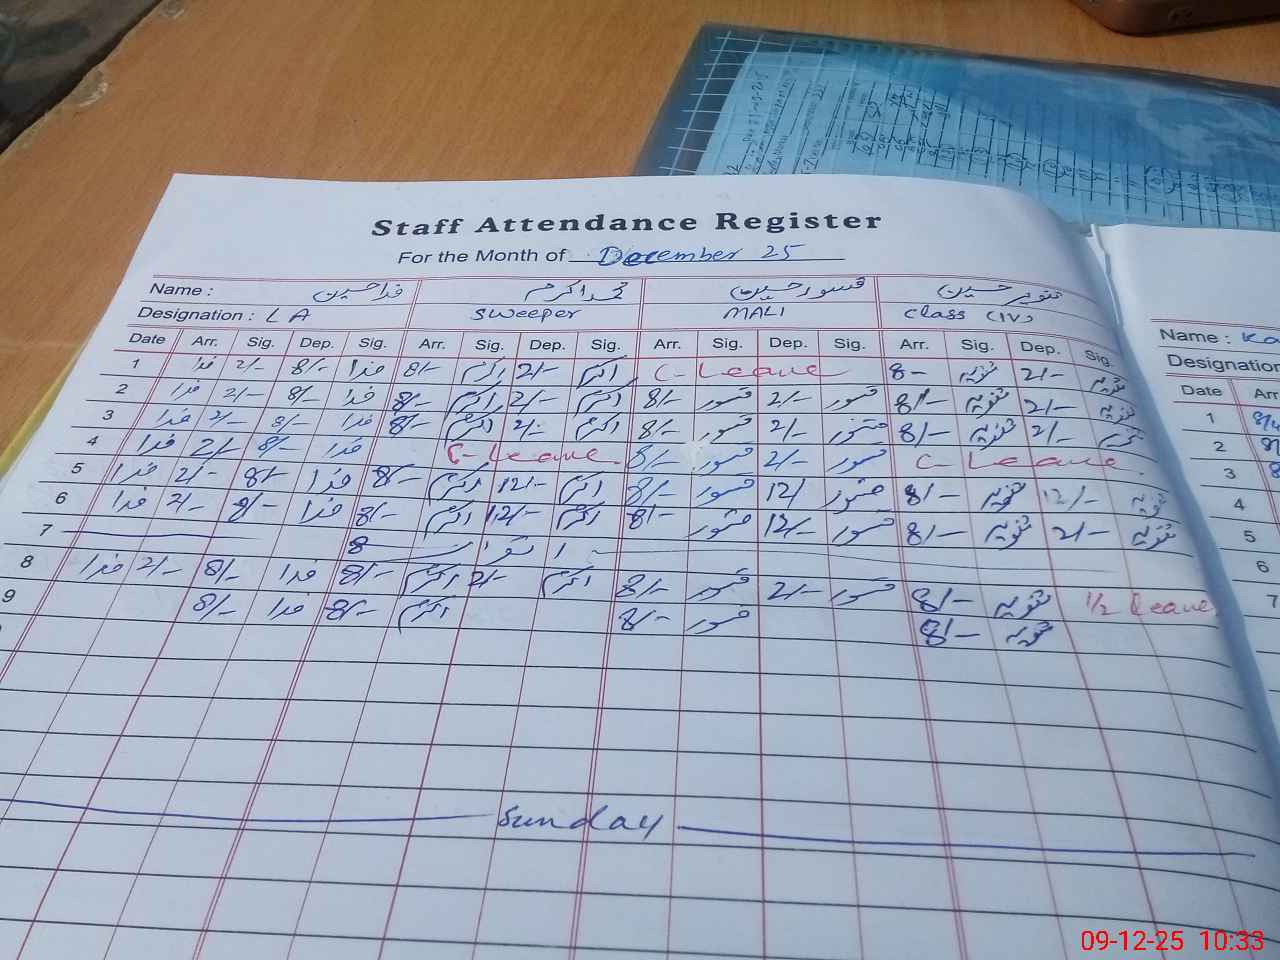 Staff Attendance Register
For the Month of December 25
Name : فدا حسین محمد اکرم قسور حسین تنویر حسین
Designation : LA Sweeper MALI Class (IV)
Date Arr. Sig. Dep. Sig. Arr. Sig. Dep. Sig. Arr. Sig. Dep. Sig. Arr. Sig. Dep. Sig.
1 فدا 2/- 8/- فدا 8/- اکرم 2/- اکرم C-Leave 8- تنویر 2/- تنویر
2 فدا 2/- 8/- فدا 8/- اکرم 2/- اکرم 8/- قسور 2/- قسور 8/- تنویر 2/- تنویر
3 فدا 2/- 8/- فدا 8/- اکرم 2/- اکرم 8/- قسور 2/- قسور 8/- تنویر 2/- تنویر
4 فدا 2/- 8/- فدا C-Leave 8/- قسور 2/- قسور C-Leave
5 فدا 2/- 8/- فدا 8/- اکرم 12/- اکرم 8/- قسور 12/ قسور 8/- تنویر 12/- تنویر
6 فدا 2/- 8/- فدا 8/- اکرم 12/- اکرم 8/- قسور 12/- قسور 8/- تنویر 2/- تنویر
7
8 فدا 2/- 8/- فدا 8/- اکرم 2/- اکرم 8/- قسور 2/- قسور 8/- تنویر 1/2 Leave
9 8/- فدا 8/- اکرم 8/- قسور 8/- تنویر
Sunday
Name : Ka
Designation
Date Arr
1
2
3
4
5
6
7
09-12-25 10:33